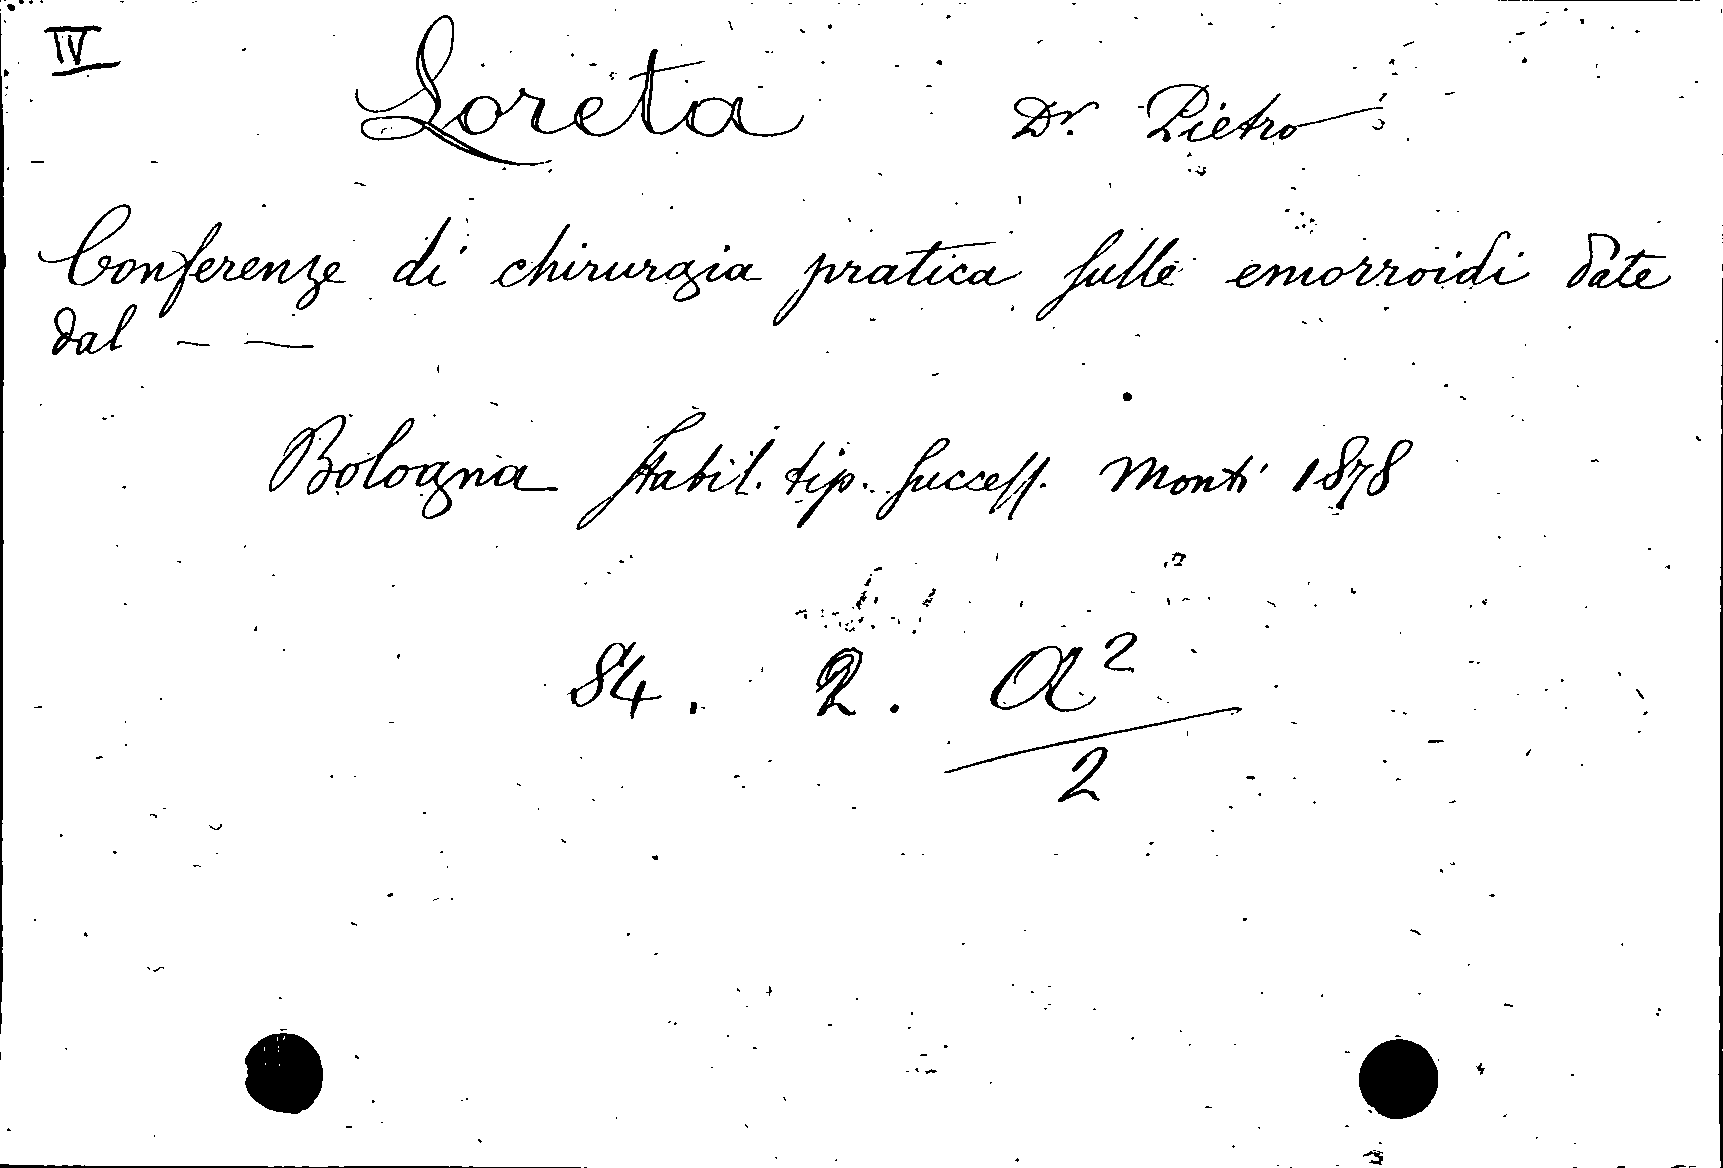 IV
Loreta Dr. Pietro
Conferenze di chirurgia pratica sulle emorroidi date
dal — —
Bologna Stabil. tip. Success. Monti 1878
84. 2. a²
2